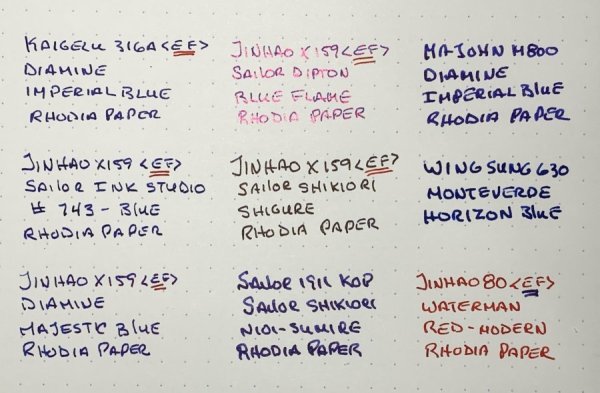 KAIGELU 316A <EF>
DIAMINE
IMPERIAL BLUE
RHODIA PAPER
JINHAO X159 <EF>
SAILOR DIPTON
BLUE FLAME
RHODIA PAPER
MR JOHN M800
DIAMINE
IMPERIAL BLUE
RHODIA PAPER
JINHAO X159 <EF>
SAILOR INK STUDIO
# 743 - BLUE
RHODIA PAPER
JINHAO X159 <EF>
SAILOR SHIKIORI
SHIGURE
RHODIA PAPER
WING SUNG 630
MONTEVERDE
HORIZON BLUE
JINHAO X159 <EF>
DIAMINE
MAJESTIC BLUE
RHODIA PAPER
SAILOR 1911 KOP
SAILOR SHIKIORI
NIOI-SUMIRE
RHODIA PAPER
JINHAO 80 <EF>
WATERMAN
RED-MODERN
RHODIA PAPER